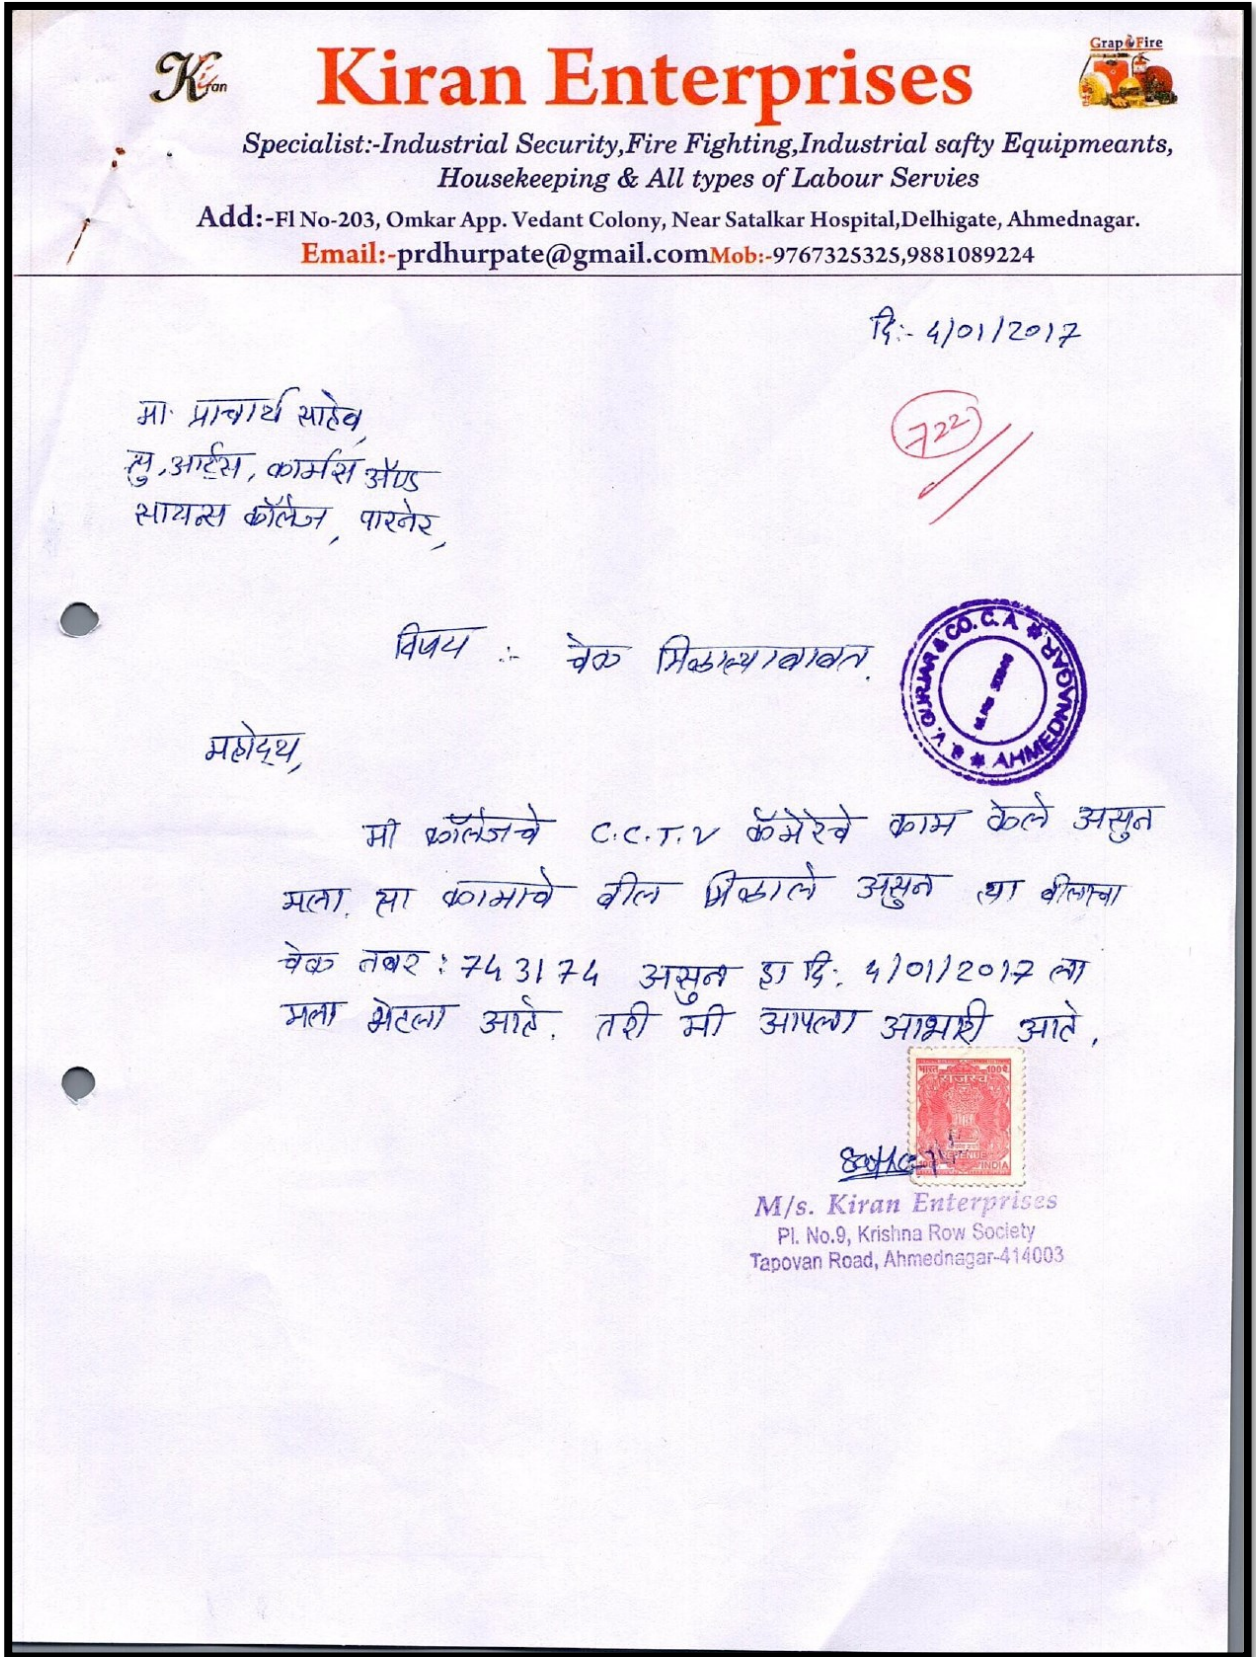 Kiran
Kiran Enterprises
Grap Fire
Specialist:-Industrial Security,Fire Fighting,Industrial safty Equipmeants,
Housekeeping & All types of Labour Servies
Add:-Fl No-203, Omkar App. Vedant Colony, Near Satalkar Hospital,Delhigate, Ahmednagar.
Email:-prdhurpate@gmail.comMob:-9767325325,9881089224
दि:- 4/01/2017
722
मा. प्राचार्य साहेब,
न्यु, आर्ट्स, कार्मस अॅण्ड
सायन्स कॉलेज, पारनेर,
विषय :- चेक मिळाल्याबाबत.
V. GURJAR & CO. C. A. * AHMEDNAGAR *
महोदय,
मी कॉलेजचे C.C.T.V कॅमेरेचे काम केले असुन
मला. त्या कामाचे बील मिळाले असुन त्या बीलाचा
चेक नंबर : 743174 असुन हा दि: 4/01/2017 ला
मला भेटला आहे. तरी मी आपला आभारी आहे.
भारत 100
राजस्व
REVENUE
INDIA
M/s. Kiran Enterprises
Pl. No.9, Krishna Row Society
Tapovan Road, Ahmednagar-414003